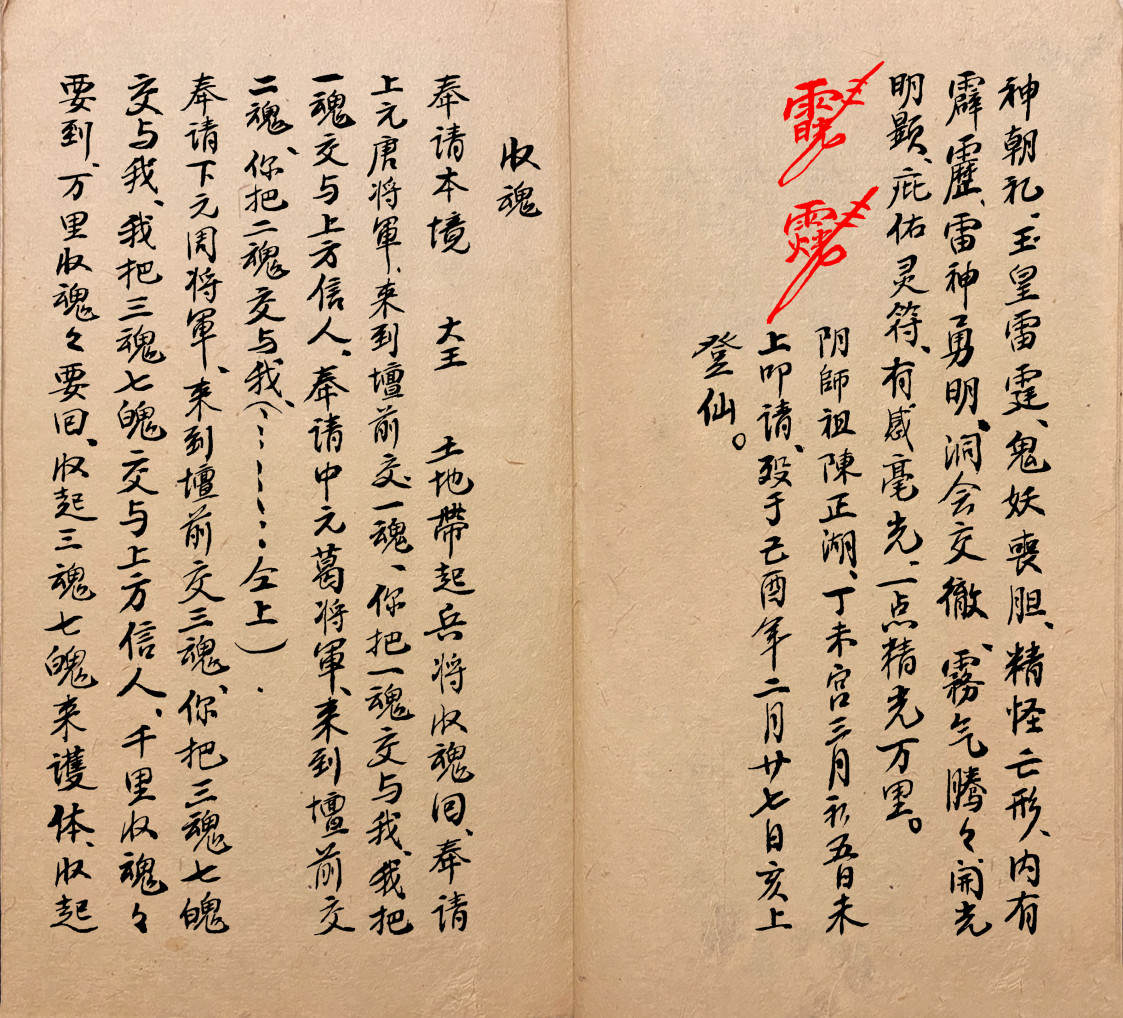 神朝礼、玉皇雷霆、鬼妖喪胆、精怪亡形、内有
霹靂、雷神勇明、洞会交徹、霧气騰々開光
明顕、庇佑灵符、有感毫光、一点精光万里。
阴師祖陳正湖、丁未宫三月初五日未
上叩請、殁于己酉年二月廿七日亥上
登仙。
收魂
奉请本境 大王 土地帶起兵将收魂回、奉请
上元唐将軍、来到壇前交一魂、你把一魂交与我、我把
一魂交与上方信人、奉请中元葛将軍、来到壇前交
二魂、你把二魂交与我、(⋮⋮⋮⋮仝上)．
奉请下元周将軍、来到壇前交三魂、你把三魂七魄
交与我、我把三魂七魄交与上方信人、千里收魂々
要到、万里收魂々要回、收起三魂七魄来護体、收起